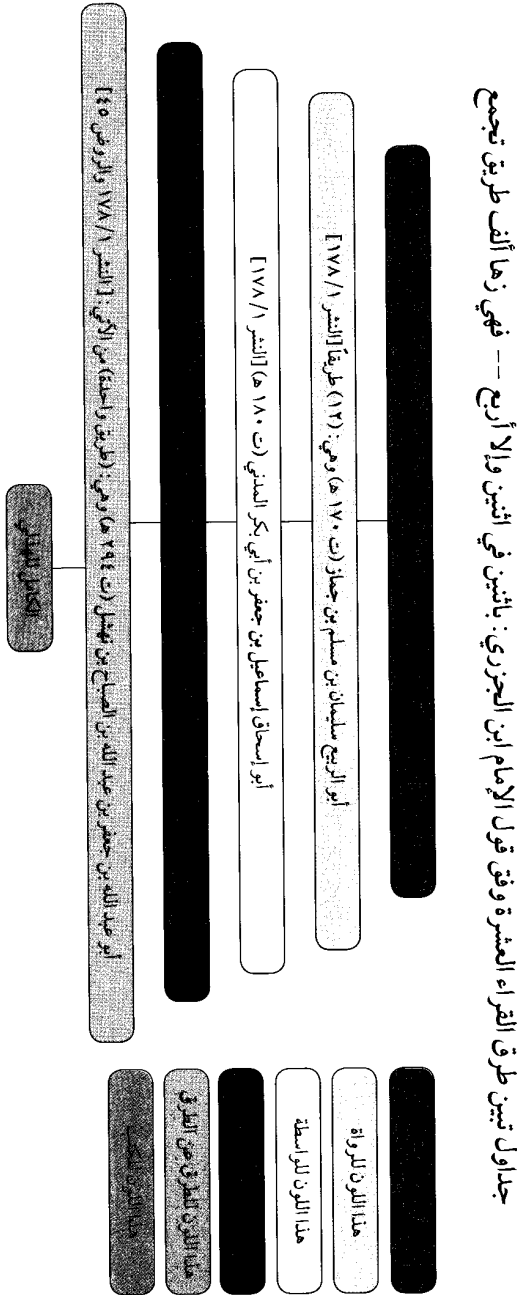 جداول تبين طرق القراء العشرة وفق قول الإمام ابن الجزري: باثنين في اثنين وإلا أربع -- فهي زها ألف طريق تجمع
أبو الربيع سليمان بن مسلم بن جماز (ت ١٧٠ هـ) وهي: (١٢) طريقاً [النشر ١/ ١٧٨]
أبو إسحاق إسماعيل بن جعفر بن أبي بكر المدني (ت ١٨٠ هـ) [النشر ١/ ١٧٨]
أبو عبد الله جعفر بن عبد الله بن الصباح بن نهشل (ت ٢٩٤ هـ) وهي: (طريق واحدة) من الآتي: [النشر ١/ ١٧٨ والروض ٤٥]
الكامل للهذلي
هذا اللون للرواة
هذا اللون للواسطة
هذا اللون للطرق عن الطرق
هذا اللون للكتب